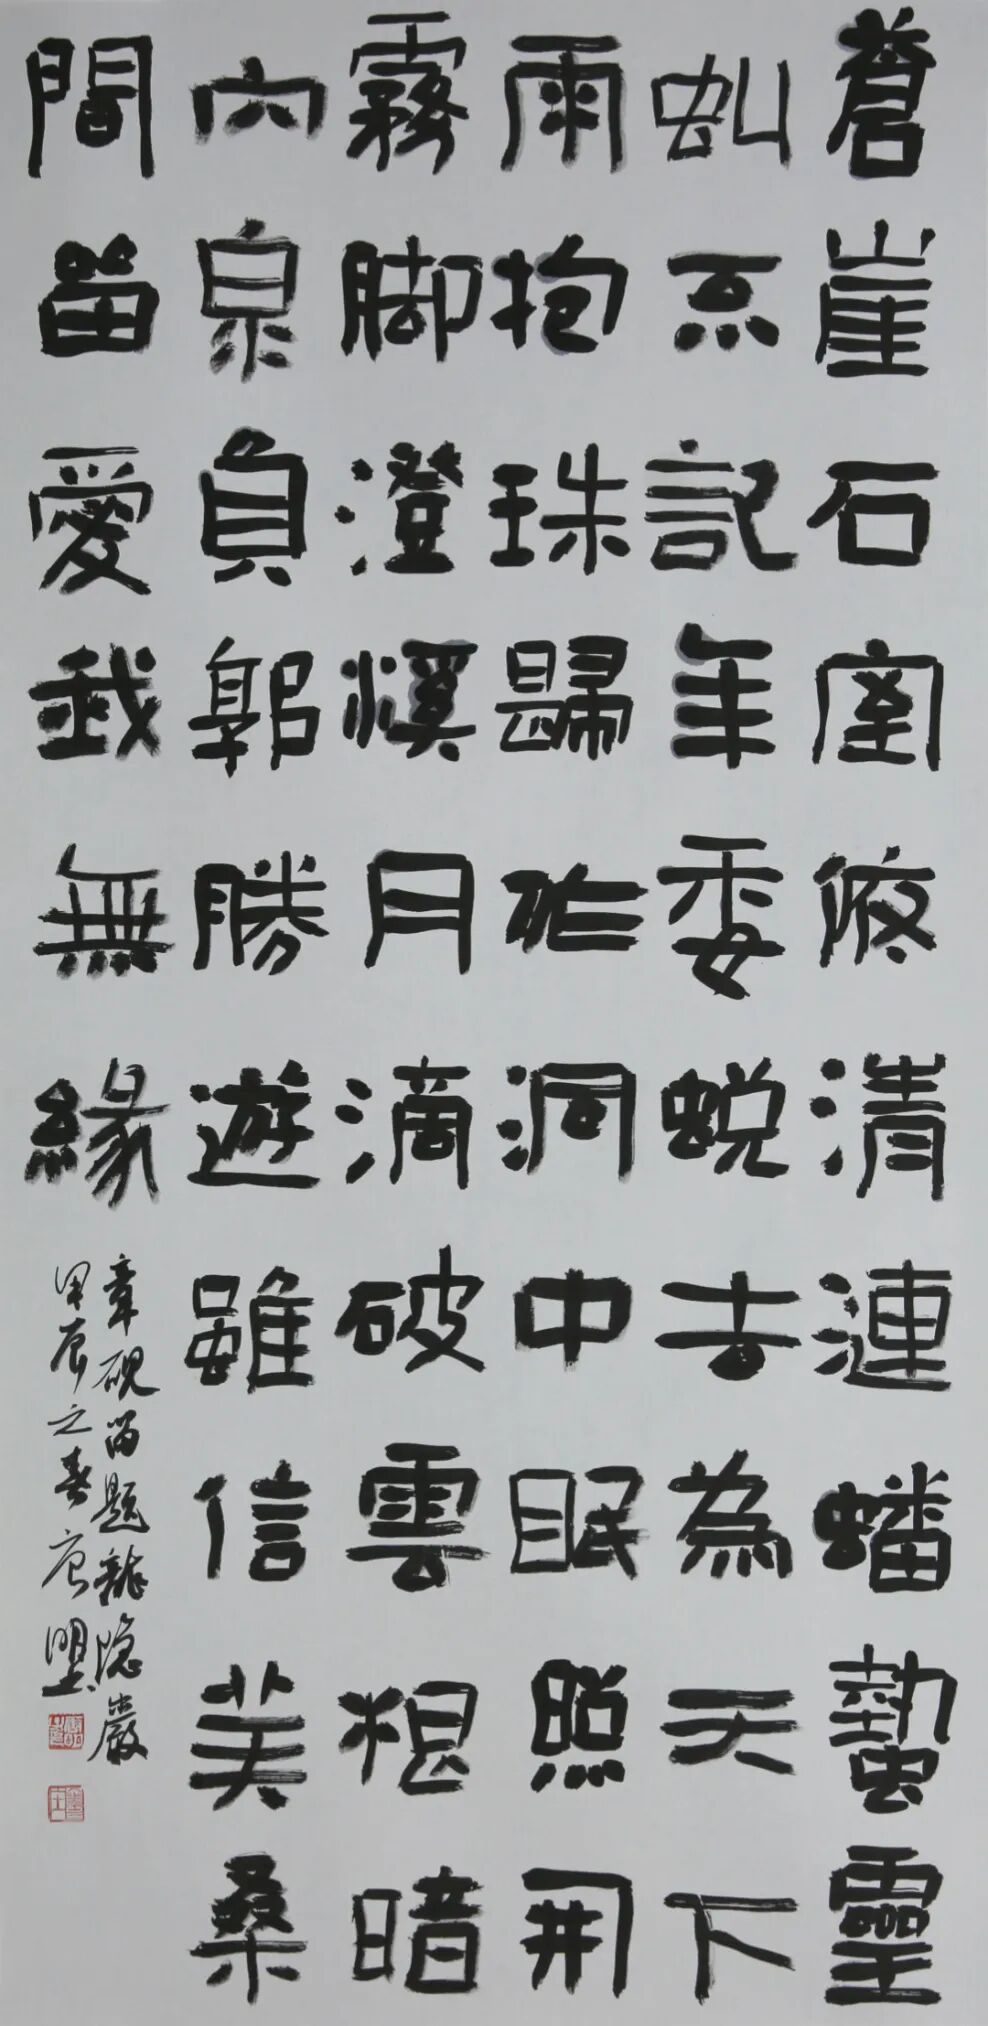 蒼崖石室清漣蟠蟄靈
虬不記年委蛻去為天下
雨抱珠歸在洞中眠照開
霧脚澄溪月滴破雲根暗
穴泉負郭勝遊雖信美桑
間留愛我無緣
章硯留題龍隱巖
甲辰之春唐盟